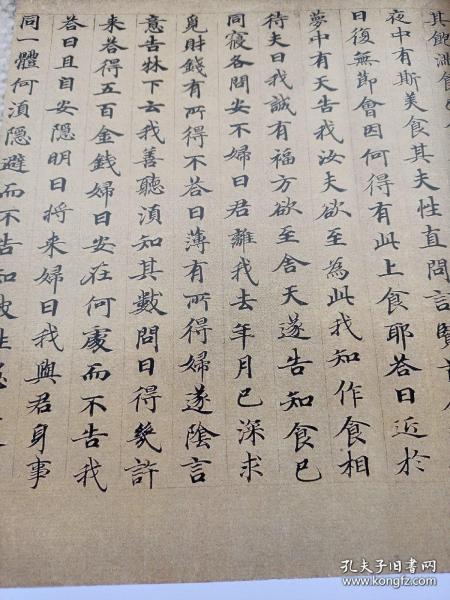 其飽
夜中有斯美食其夫性直問言賢首
日復無節會因何得有此上食耶答曰近於
夢中有天告我汝夫欲至為此我知作食相
待夫曰我誠有福方欲至舍天遂告知食已
同寢各問安不婦曰君離我去年月已深求
覓財錢有所得不答曰薄有所得婦遂陰言
意告牀下云我善聽須知其數問曰得幾許
来答得五百金錢婦曰安在何處而不告我
答曰且自安隱明日將来婦曰我與君身事
同一體何須隱避而不告知彼性
孔夫子旧书网
www.kongfz.com